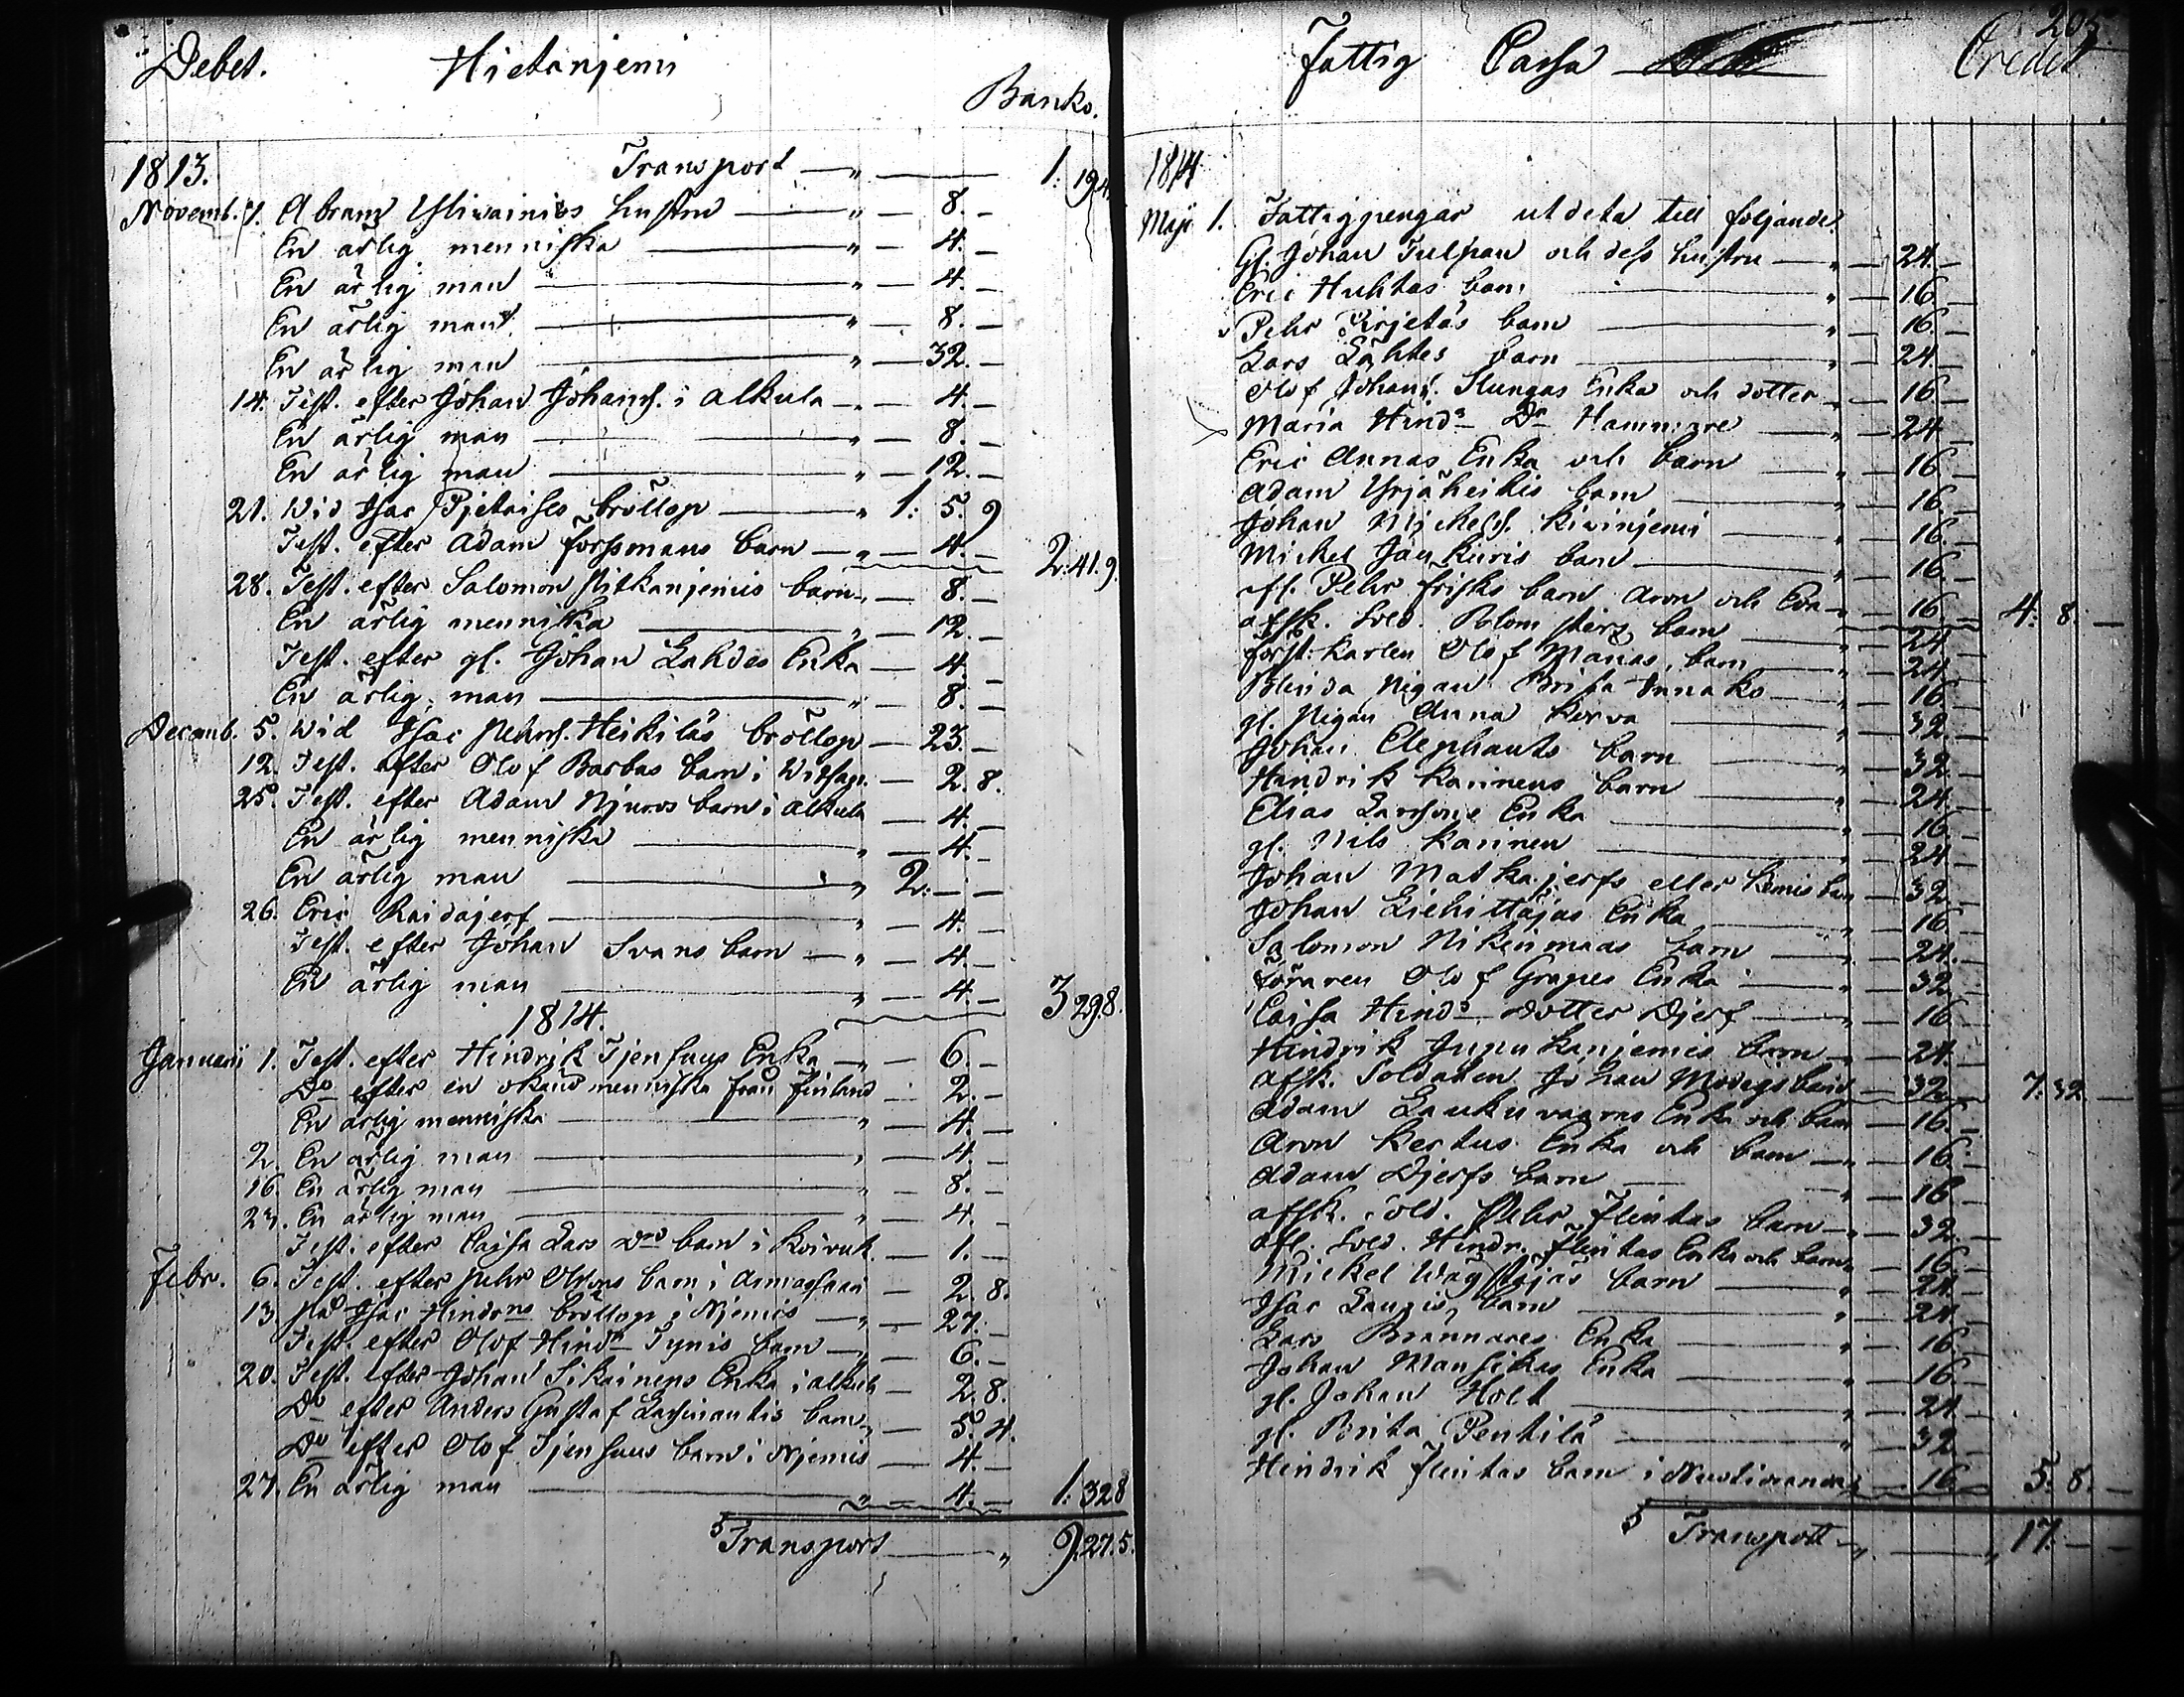 Debet. Hietanjemi
Banko.
1813. Transport — " — 1: 19 4.
Novemb. 7. Abram Yliwainios hustru — " — 8. —
En ärlig menniska — " — 4. —
En ärlig man — " — 4. —
En ärlig man — " — 8. —
En ärlig man — 32. —
14. Test. efter Johan Johans. i Alkula — " — 4. —
En ärlig man — " — 8. —
En ärlig man — " — 12. —
21. Wid Isac Pjetaises bröllop — " 1: 5. 9
Test. efter Adam Forssmans barn — " — 4. — 2: 41. 9.
28. Test. efter Salomon Pitkänjemis barn — " — 8. —
En ärlig menniska — " — 12. —
Test. efter gl. Johan Lahdes Enka — 4. —
En ärlig man — " — 8. —
Decemb. 5. Wid Isac Pehrs. Heikiläs bröllop — 23. —
12. Test. efter Olof Barbas barn i — 2. 8.
25. Test. efter Adam Njuros barn i Alkula — 4. —
En ärlig menniska — " — 4. —
En ärlig man — " 2: — —
26. Eric Raidajerf — " — 4. —
Test. efter Johan Svans barn — " — 4. —
En ärlig man — " — 4. — 3 29 8.
1814.
Januarii 1. Test. efter Hindrik Tjensuus Enka — " — 6. —
Do efter en okänd menniska från Finland — 2. —
En ärlig menniska — " — 4. —
2. En ärlig man — " — 4. —
16. En ärlig man — " — 8. —
23. En ärlig man — " — 4. —
Test. efter Caisa Lars Drs barn i Koivuk. — 1. —
Febr. 6. Test. efter Pehr barn i — 2. 8.
13. På Isac Hindrns bröllop i Njemis — " — 27. —
Test. efter Olof Hindrn Tynis barn — " — 6. —
20. Test. efter Johan Sikainens Enka i Alkula — 2. 8.
Do efter Anders Gustaf barn — 5. 4.
Do efter Olof Tjensuus barn i Njemis — 4. —
27. En ärlig man — " — 4. — 1: 32 8
Transport — " 9. 27. 5.
205.
Fattig Cassa Credit
1814
Maji 1. Fattigpengar utdelta till följande
Gl. Johan Tulpan och dess hustru — " — 24. —
Eric Huhtas barn — " — 16. —
Pehr Kirjetäs barn — " — 16. —
Lars Lähtes barn — " — 24 —
Olof Johans. Slungas Enka och dotter — 16. —
Maria Hindrs Dr — " — 24 —
Eric Annas Enka och barn — " — 16 —
Adam Yrjäheikis barn — " — 16. —
Johan Mickels. Kivinjemi — " — 16. —
Mickel Jaukuris barn — " — 16. —
afl. Pehr Frisks barn Aron och Eva — 16 — 4: 8. —
afsk. Sold. Blomsters barn — " — 24 —
Förste Karlen Olof Manas barn — " — 24 —
Blinda Pigan Brita Innako — " — 16 —
gl. Pigan Anna Kerva — " — 32 —
Johan Elephants barn — " — 32 —
Hindrik Kannens barn — " — 24. —
Elias Larssons Enka — " — 16 —
gl. Nils Kaninen — " — 24 —
Johan Matkajerfs eller Kemis barn — 32. —
Johan Liehittäjas Enka — " — 16. —
Salomon Nikenmaas barn — " — 24. —
Föraren Olof Grapes Enka — " — 32 —
Caisa Hindrs dotter Djerf — " — 16 —
Hindrik Junukanjemes barn — " — 24. —
afsk. Soldaten Johan Modigs barn — 32 — 7: 32. —
Adam Laukuvaaras Enka och barn — 16. —
Aron Kertus Enka och barn — " — 16. —
Adam Djerfs barn — " — 16 —
afsk. Sold. Pehr Flintas barn — " — 32 —
afl. Sold. Hindr. Flintas Enka och barn — 16. —
Mickel Wägstöjäs barn — " — 24. —
Isac Laugis barn — " — 24. —
Lars Brännares Enka — " — 16. —
Johan Mansikas Enka — " — 16. —
gl. Johan Holt — " — 24 —
gl. Brita Pentilä — " — 32 —
Hindrik Flintas barn i — 16. — 5: 8. —
Transport — " — " 17: — —